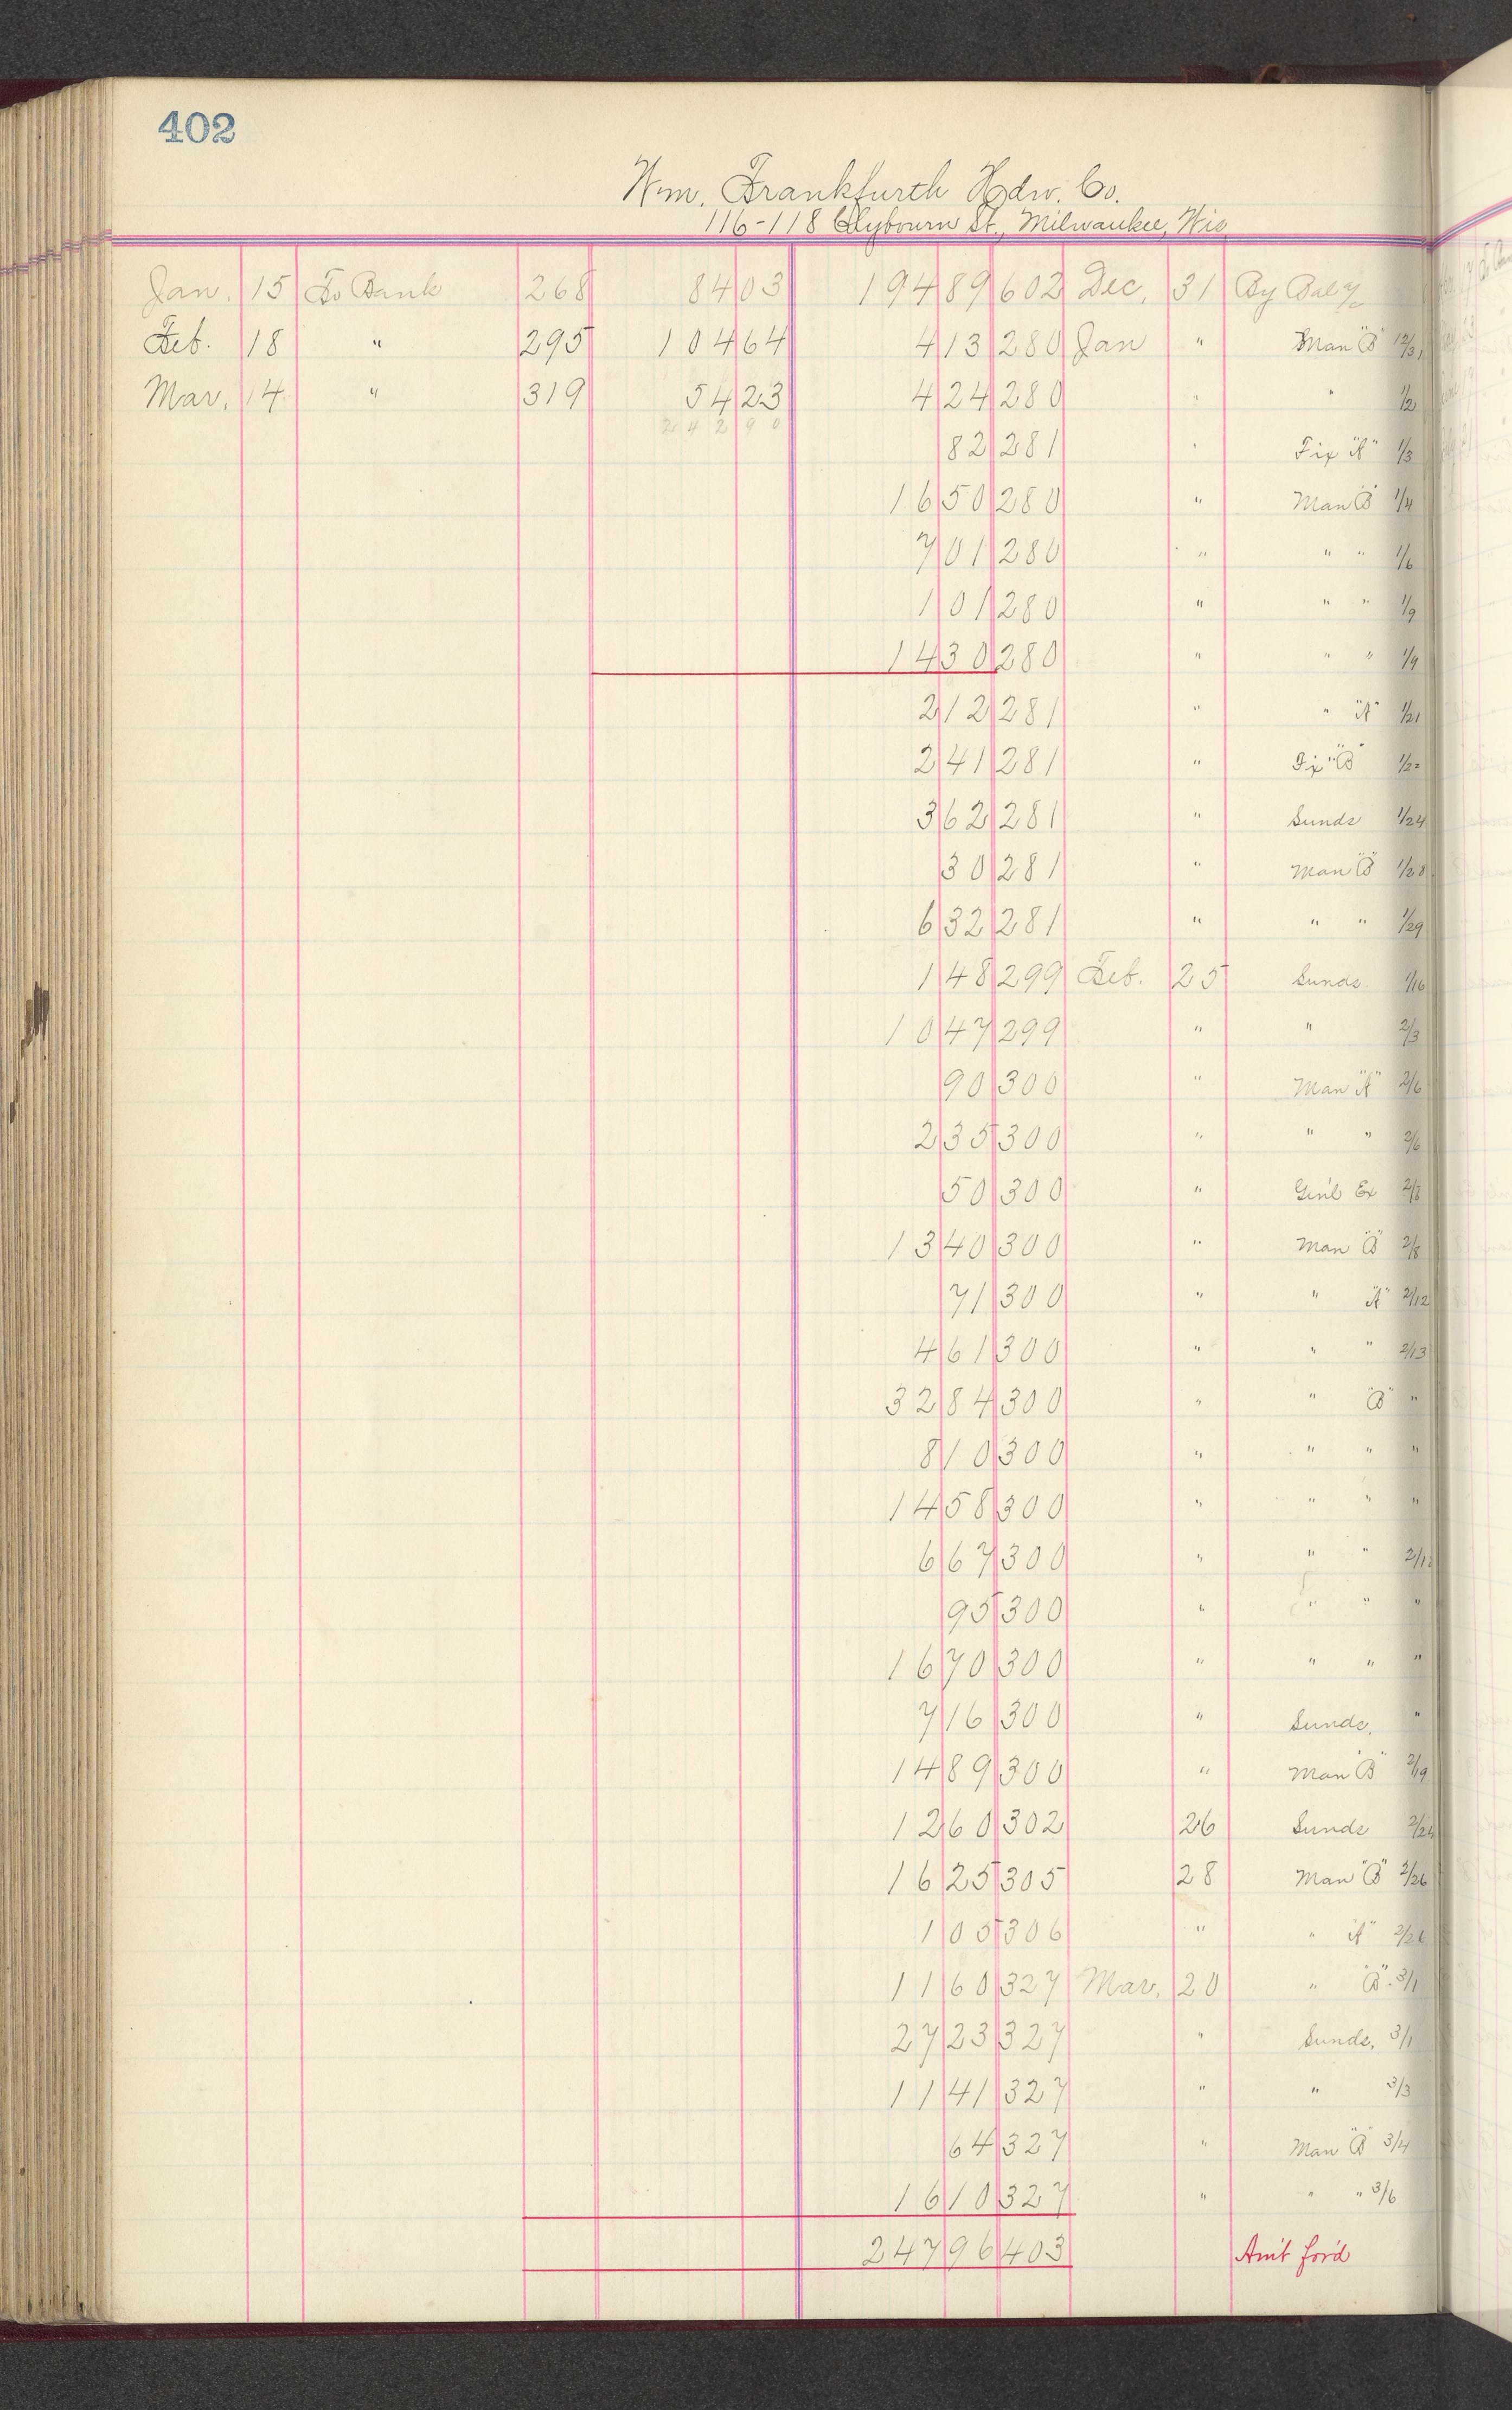 402
Wm. Frankfurth Hdw. Co.
116-118 Clybourn St., Milwaukee, Wis
Jan. 15 To Bank 268 84 03 194 89 602 Dec. 31 By Bal %
Feb. 18 " 295 104 64 4 13 280 Jan " Man "B" 12/31
Mar. 14 " 319 54 23 4 24 280 " " 1/2
242 90
82 281 " Fix "A" 1/3
16 50 280 " Man "B" 1/4
7 01 280 " " " 1/6
1 01 280 " " " 1/9
14 30 280 " " " 1/9
2 12 281 " " "A" 1/21
2 41 281 " Fix "B" 1/22
3 62 281 " Sunds 1/24
30 281 " Man "B" 1/28
6 32 281 " " " 1/29
1 48 299 Feb. 25 Sunds. 1/16
10 47 299 " " 2/3
90 300 " Man "A" 2/6
2 35 300 " " " 2/6
50 300 " Gen'l Ex
13 40 300 " Man "B" 2/8
71 300 " " "A" 2/12
4 61 300 " " " 2/13
32 84 300 " " "B" "
8 10 300 " " " "
14 58 300 " " " "
6 67 300 " " "
95 300 " " " "
16 70 300 " " " "
7 16 300 " Sunds. "
14 89 300 " Man "B" 2/19
12 60 302 26 Sunds
16 25 305 28 Man "B" 2/26
1 05 306 " " "A" 2/26
11 60 327 Mar. 20 " "B" 3/1
27 23 327 " Sunds. 3/1
11 41 327 " " 3/3
64 327 " Man "B" 3/4
16 10 327 " " " 3/6
247 96 403 Am't for'd